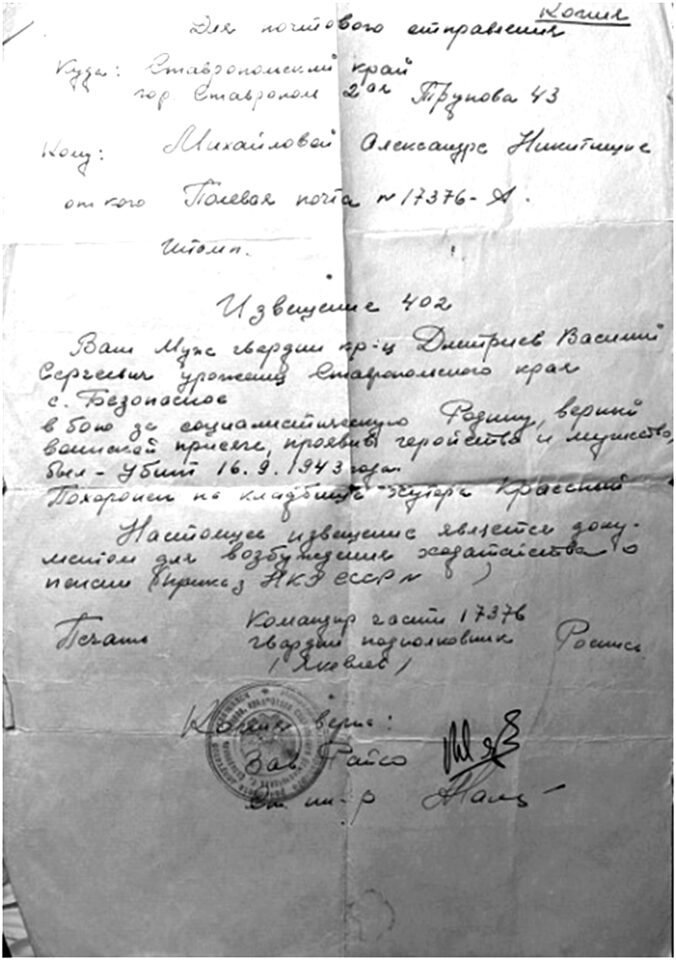 Копия
Для почтового отправления
Куда: Ставропольский край
гор. Ставрополь 2ая Трунова 43
Кому: Михайловой Александре Никитичне
от кого Полевая почта N 17376-А.
Штамп.
Извещение 402
Ваш муж гвардии кр-ц Дмитриев Василий
Сергеевич уроженец Ставропольского края
с. Безопасное
в бою за социалистическую Родину, верный
воинской присяге, проявив геройство и мужество,
был - убит 16.9.1943 года.
Похоронен на кладбище хутора Красный
Настоящее извещение является доку-
ментом для возбуждения ходатайства о
пенсии (приказ НКО СССР N )
Командир части 17376
Печать гвардии подполковник Роспись
(Яковлев)
Копия верна:
Зав Райсо
Ст. ин-р